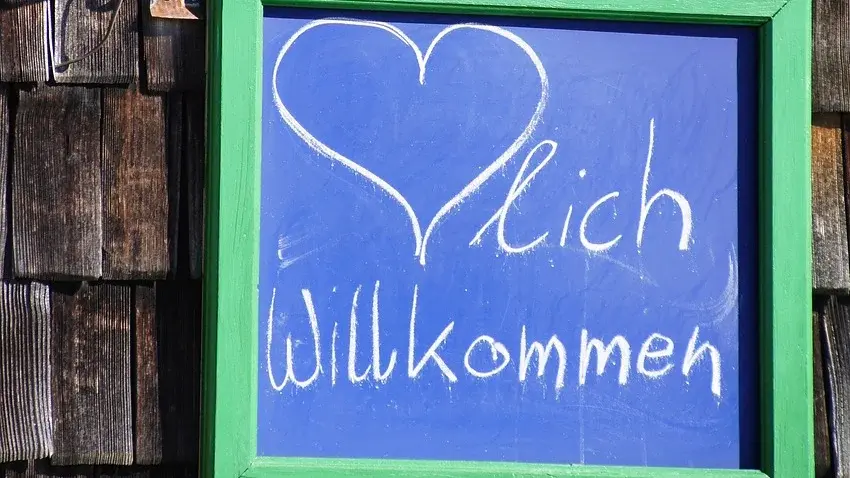 lich
Willkommen